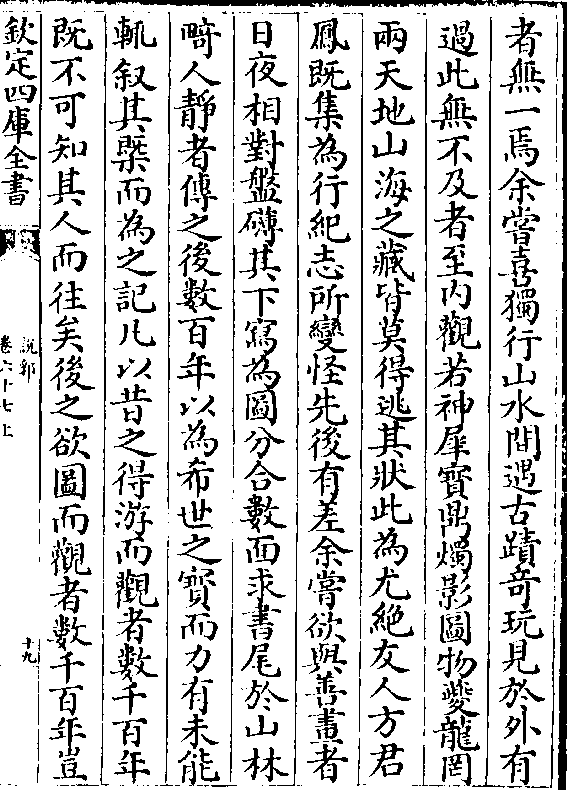 者無一焉余嘗喜獨行山水間遇古蹟竒玩見於外有
過此無不及者至内觀若神犀寳鼎燭影圖物夔龍罔
兩天地山海之藏皆莫得逃其狀此為尤絶友人方君
鳳既集為行紀志所變怪先後有差余嘗欲與善畫者
日夜相對盤礴其下寫為圖分合數面求書尾於山林
畸人靜者傳之後數百年以為希世之寳而力有未能
輒叙其槩而為之記凡以昔之得游而觀者數千百年
既不可知其人而往矣後之欲圖而觀者數千百年豈
欽定四庫全書
説郛
卷六十七上
十九